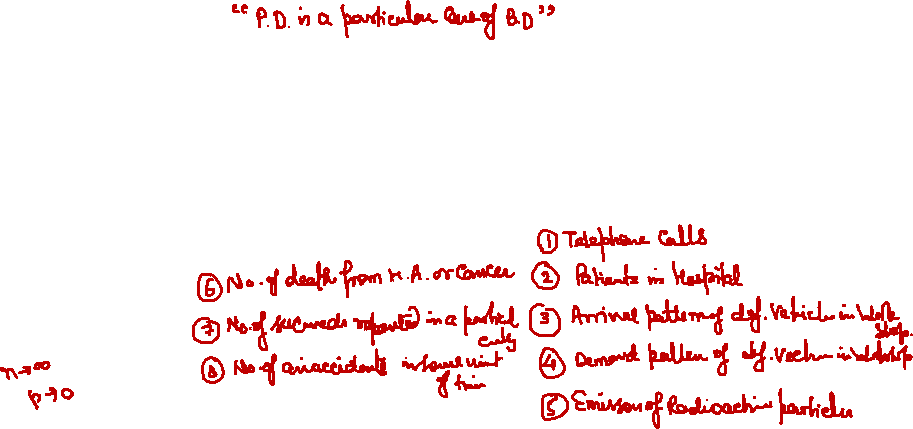 "P.D. is a particular case of B.D"
① Telephone calls
② Patients in Hospital
③ Arrival pattern of def. Vehicle in Work
Shop.
④ Demand patten of def. in
⑤ Emission of Radioactive particles
⑥ No. of death from H.A. or Cancer
⑦ No. of reported in a
city
⑧ No. of in some unit
of
n→∞
p→0